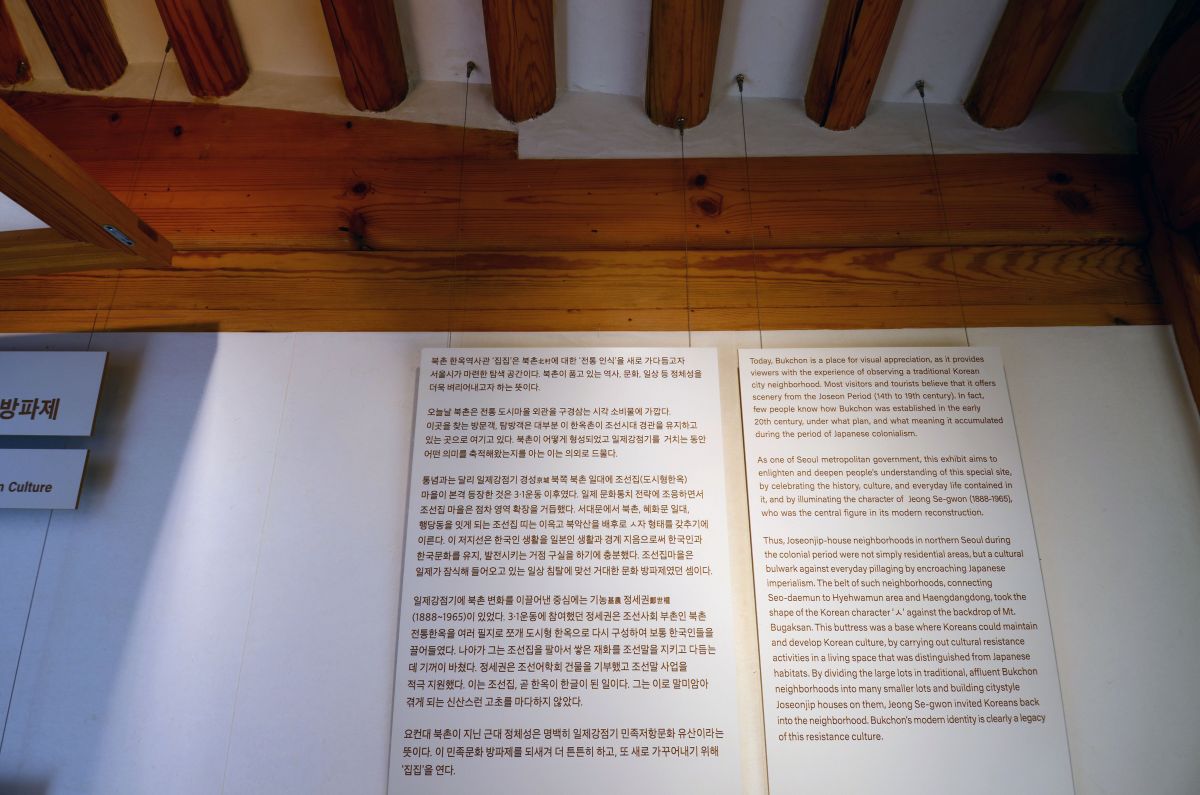 방파제
Culture
북촌 한옥역사관 '집집'은 북촌北村에 대한 '전통 인식'을 새로 가다듬고자
서울시가 마련한 탐색 공간이다. 북촌이 품고 있는 역사, 문화, 일상 등 정체성을
더욱 벼리어내고자 하는 뜻이다.
오늘날 북촌은 전통 도시마을 외관을 구경삼는 시각 소비물에 가깝다.
이곳을 찾는 방문객, 탐방객은 대부분 이 한옥촌이 조선시대 경관을 유지하고
있는 곳으로 여기고 있다. 북촌이 어떻게 형성되었고 일제강점기를 거치는 동안
어떤 의미를 축적해왔는지를 아는 이는 의외로 드물다.
통념과는 달리 일제강점기 경성京城 북쪽 북촌 일대에 조선집(도시형한옥)
마을이 본격 등장한 것은 3·1운동 이후였다. 일제 문화통치 전략에 조응하면서
조선집 마을은 점차 영역 확장을 거듭했다. 서대문에서 북촌, 혜화문 일대,
행당동을 잇게 되는 조선집 띠는 이윽고 북악산을 배후로 ㅅ자 형태를 갖추기에
이른다. 이 저지선은 한국인 생활을 일본인 생활과 경계 지음으로써 한국인과
한국문화를 유지, 발전시키는 거점 구실을 하기에 충분했다. 조선집마을은
일제가 잠식해 들어오고 있는 일상 침탈에 맞선 거대한 문화 방파제였던 셈이다.
일제강점기에 북촌 변화를 이끌어낸 중심에는 기농基農 정세권鄭世權
(1888~1965)이 있었다. 3·1운동에 참여했던 정세권은 조선사회 부촌인 북촌
전통한옥을 여러 필지로 쪼개 도시형 한옥으로 다시 구성하여 보통 한국인들을
끌어들였다. 나아가 그는 조선집을 팔아서 쌓은 재화를 조선말을 지키고 다듬는
데 기꺼이 바쳤다. 정세권은 조선어학회 건물을 기부했고 조선말 사업을
적극 지원했다. 이는 조선집, 곧 한옥이 한글이 된 일이다. 그는 이로 말미암아
겪게 되는 신산스런 고초를 마다하지 않았다.
요컨대 북촌이 지닌 근대 정체성은 명백히 일제강점기 민족저항문화 유산이라는
뜻이다. 이 민족문화 방파제를 되새겨 더 튼튼히 하고, 또 새로 가꾸어내기 위해
'집집'을 연다.
Today, Bukchon is a place for visual appreciation, as it provides
viewers with the experience of observing a traditional Korean
city neighborhood. Most visitors and tourists believe that it offers
scenery from the Joseon Period (14th to 19th century). In fact,
few people know how Bukchon was established in the early
20th century, under what plan, and what meaning it accumulated
during the period of Japanese colonialism.
As one of Seoul metropolitan government, this exhibit aims to
enlighten and deepen people's understanding of this special site,
by celebrating the history, culture, and everyday life contained in
it, and by illuminating the character of Jeong Se-gwon (1888-1965),
who was the central figure in its modern reconstruction.
Thus, Joseonjip-house neighborhoods in northern Seoul during
the colonial period were not simply residential areas, but a cultural
bulwark against everyday pillaging by encroaching Japanese
imperialism. The belt of such neighborhoods, connecting
Seo-daemun to Hyehwamun area and Haengdangdong, took the
shape of the Korean character 'ㅅ' against the backdrop of Mt.
Bugaksan. This buttress was a base where Koreans could maintain
and develop Korean culture, by carrying out cultural resistance
activities in a living space that was distinguished from Japanese
habitats. By dividing the large lots in traditional, affluent Bukchon
neighborhoods into many smaller lots and building citystyle
Joseonjip houses on them, Jeong Se-gwon invited Koreans back
into the neighborhood. Bukchon's modern identity is clearly a legacy
of this resistance culture.